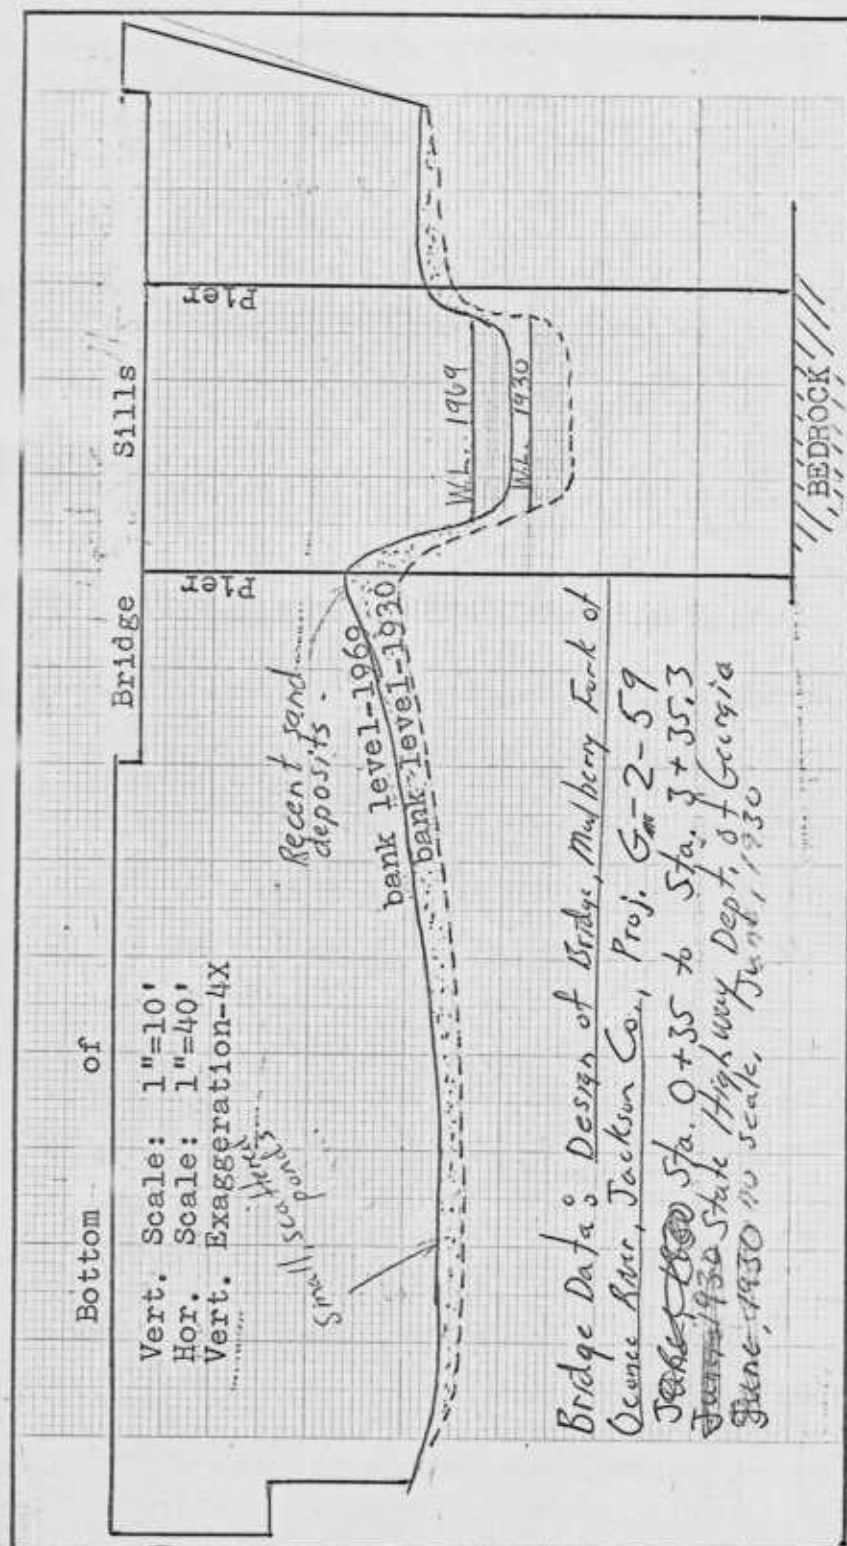 Bottom of Bridge Sills
Vert. Scale: 1"=10'
Hor. Scale: 1"=40'
Vert. Exaggeration-4X
Small, scattered
ponds
Recent sand
deposits.
bank level-1969
bank level-1930
Pier
Pier
W.L. 1969
W.L. 1930
BEDROCK
Bridge Data: Design of Bridge, Mulberry Fork of
Oconee River, Jackson Co., Proj. G-2-59
Sta. 0+35 to Sta. 3+35.3
State Highway Dept. of Georgia
June, 1930 no scale, June, 1930